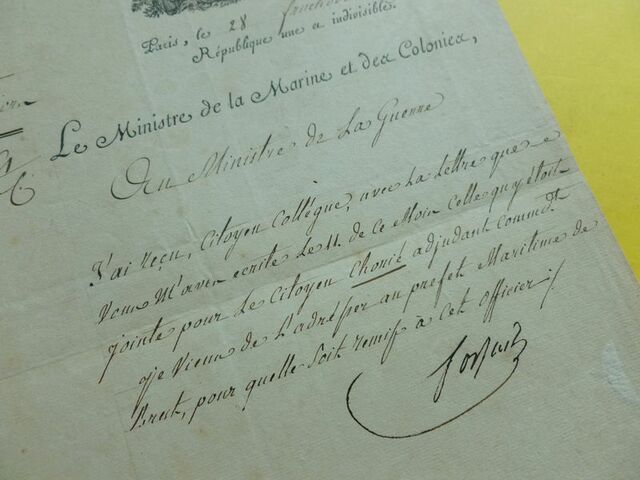 Paris, le 28
République une et indivisible.
Le Ministre de la Marine et des Colonies,
Au Ministre de La Guerre
J'ai reçu, Citoyen Collègue, avec La Lettre que
vous m'avez écrite le 11. de ce Mois celle qui y étoit
jointe pour Le Citoyen adjudant Command.t
je Viens de L'adresser au préfet Maritime de
Brest, pour quelle soit remise à cet officier